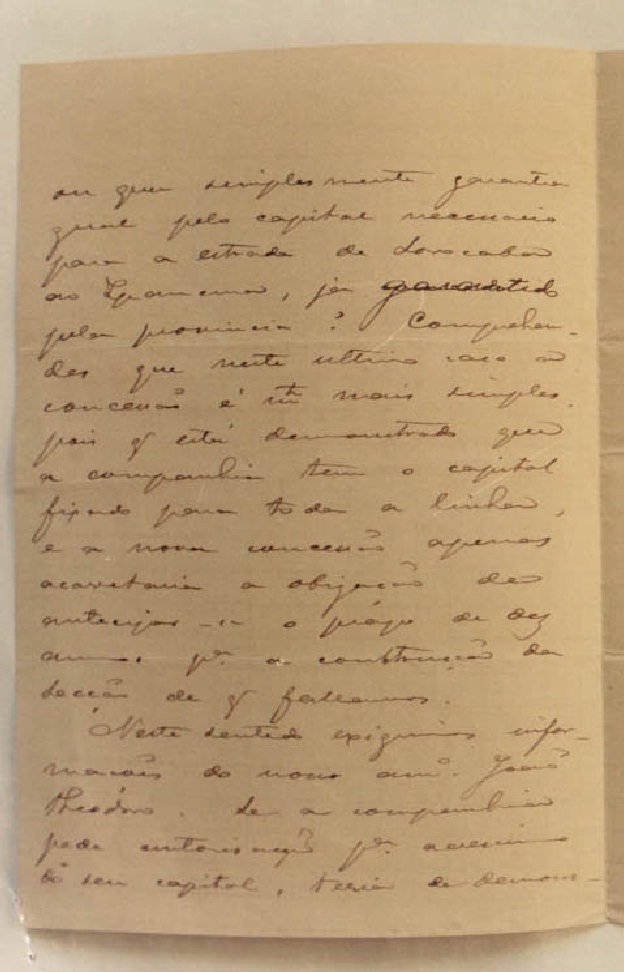 ou quer simplesmente garantia
geral pelo capital necessario
para a estrada de Sorocaba
ao Ypanema, já garantido
pela provincia? Comprehen-
des que neste ultimo caso a
concessão é mto mais simples,
pois q' está demonstrado que
a companhia tem o capital
fixado para toda a linha,
e a nova concessão apenas
acarretaria a obrigação de
antecipar-se o prazo de dez
annos pa a construcção da
secção de q' fallamos.
Neste sentido exigimos infor-
mações do nosso amo. João
Theodoro. Se a companhia
pede autorisação pa
do seu capital, teria de demons-